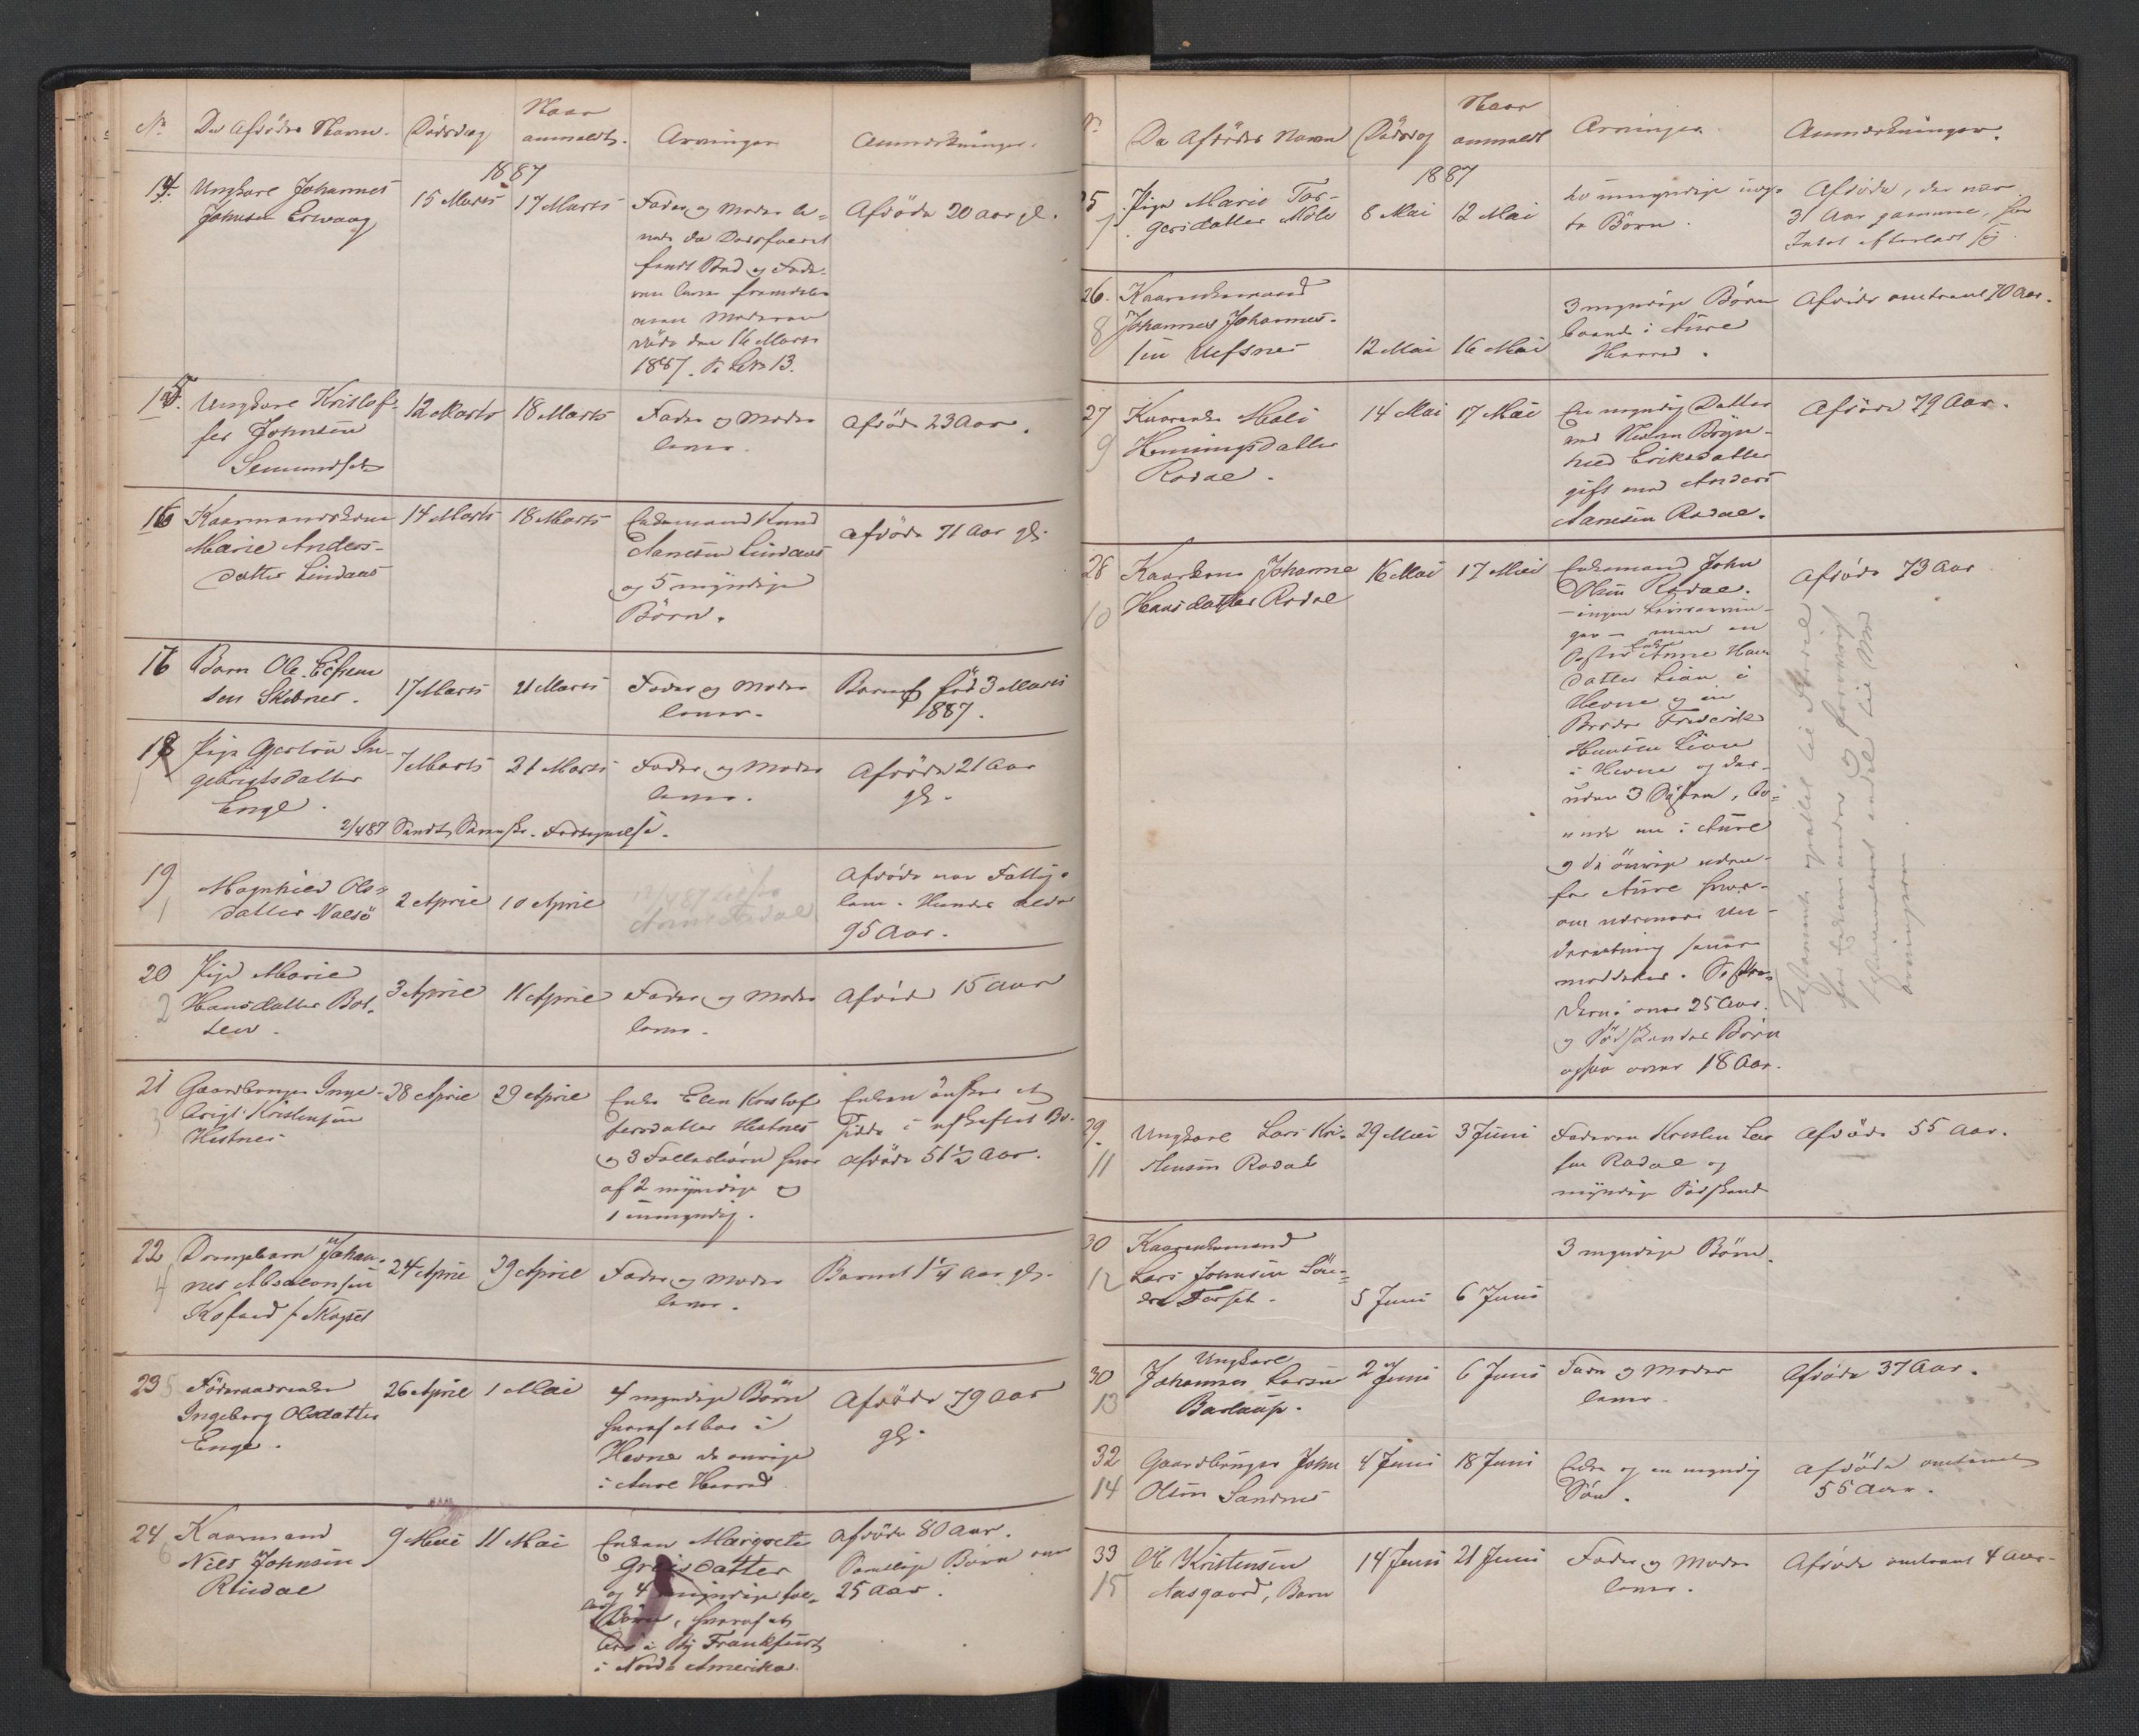 No
Den Afdödes Navn.
Dödsdag
Naar
anmeldt.
Arvinger
Anmærkninger.
1887
14.
Ungkare Johannes
Johnsen Ervaag
15 Marts
17 Marts
Fader og Moder le-
vede da Dødsfaldet
fandt Sted og Fade-
ren lever fremdeles
men Moderen
døde den 16 Marts
1887. Se No 13.
Afdöde 20 Aar gl.
15.
Ungkare Kristof-
fer Johnsen
Semundset
12 Marts
18 Marts
Fader og Moder
lever.
Afdöde 23 Aar.
16
Kaarmandskone
Marie Anders-
datter Lindaas
14 Marts
18 Marts
Enkemand Knud
Aanesen Lindaas
og 5 myndige
Børn.
Afdöde 71 Aar gl.
17
Barn Ole
sen Skibnes.
17 Marts
21 Marts
Fader og Moder
lever.
Barnet föd 3 Marts
1887.
18
Pige Gjertrü In-
gebrigtsdatter
Enge.
7 Marts
21 Marts
Fader og Moder
lever.
Afdöde 21 Aar
gl.
2/4 87 Sendt
19
1
Magnhild Ols-
datter Valsö
2 April
10 April
Afdöde var Fattig-
lem. Hendes Alder
95 Aar.
20
2
Pige Marie
Hansdatter Bot-
ten.
3 April
11 April
Fader og Moder
lever.
Afdöd 15 Aar
21
3
Gaardbruger Inge-
brigt Kristensen
Hestnes
28 April
29 April
Enke Elen Kristof
fersdatter Hestnes
og 3 Fællesbörn hvor
af 2 myndige og
1 umyndig.
Enken önsker at
sidde i uskiftet Bo.
Afdöde 51 1/2 Aar.
22
4
Drengebarn Johan-
nes Absalonsen
24 April
29 April
Fader og Moder
lever.
Barnet 1 1/4 Aar gl.
23
5
Föderaadsenke
Ingeborg Olsdatter
Enge.
26 April
1 Mai
4 myndige Börn
hvoraf et bor i
Hevne de övrige
i Aure Herred
Afdöde 79 Aar
gl.
24
6
Kaarmand
Nils Johnsen
Rindal
9 Mai
11 Mai
Enken Margrete
datter
og 4 myndige Fæl-
les Börn, hvoraf et
bor i By Frankfurt
i Nord Amerika.
Afdöde 80 Aar.
Samtlige Börn over
25 Aar.
No
De Afdödes Navn
Dödsdag
Naar
anmeldt
Arvinger.
Anmærkninger.
1887
25
7
Pige Marie Tor-
gersdatter Mölv
8 Mai
12 Mai
to umyndige uæg-
te Börn.
Afdöde, der var
31 Aar gammel, har
Intet efterladt sig.
26.
8
Kaarenkemand
Johannes Johannes-
sen Ulfsnes
12 Mai
16 Mai
3 myndige Börn
boende i Aure
Herred.
Afdöde omtrent 70 Aar.
27
9
Kaarenke Mali
Henningsdatter
Rodal.
14 Mai
17 Mai
En myndig Datter
ved Navn Bryn-
hild Eriksdatter
gift med Anders
Aanesen Rodal.
Afdöde 79 Aar.
28
10
Kaarkone Johanne
Hansdatter Rodal
16 Mai
17 Mai
Enkemand John
Olsen Rodal.
- ingen Livsarvin-
ger - men en
Søster Enke Anne Hans
datter Lian i
Hevne og en
Broder Frederik
Hansen Lian
i Hevne og des-
uden 3 Søstre, bo-
ende en i Aure
og de övrige uden-
for Aure hvor-
om nærmere Un-
derretning senere
meddeles. Søsken-
dene over 25 Aar.
og Sødskendes Börn
ogsaa over 18 Aar.
Afdöde 73 Aar
29.
11
Ungkare Lars Kri-
stensen Rodal
29 Mai
3 Juni
Faderen Kristen Lar
sen Rodal og
myndige Sødskend
Afdöde 55 Aar.
30
12
Kaarenkemand
Lars Johnsen Sön-
dre Torset.
5 Juni
6 Juni
3 myndige Börn.
30
13
Ungkare
Johannes Larsen
Barlaup.
2 Juni
6 Juni
Fader og Moder
lever.
Afdöde 37 Aar.
32
14
Gaardbruger John
Olsen Sandnes
4 Juni
18 Juni
Enke og en myndig
Sön.
Afdöde omtrent
55 Aar.
33
15
Ole Kristensen
Aasgaard, Barn
14 Juni
21 Juni
Fader og Moder
lever.
Afdöde omtrent 4 Aar.